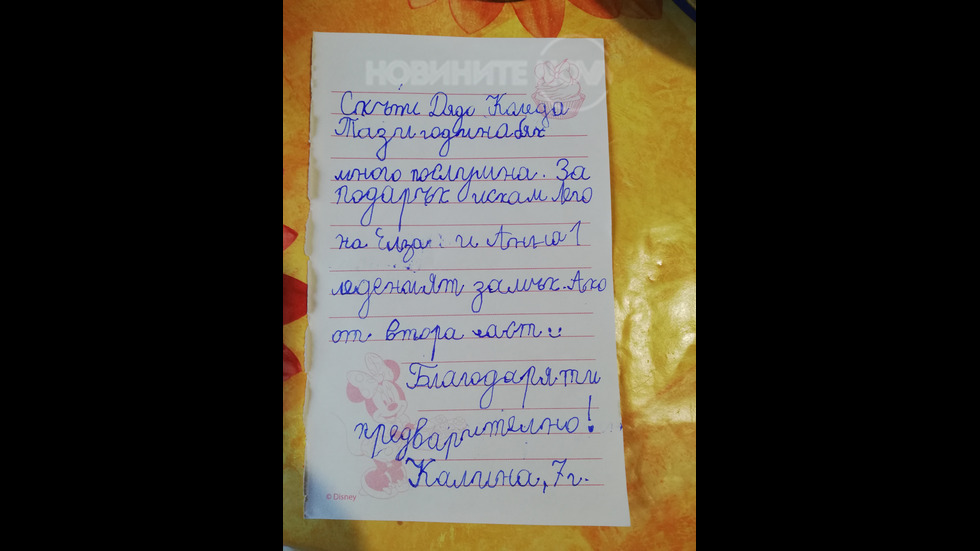 НОВИНИТЕ NOV
Скъпи Дядо Коледа
Тази година бях
много послушна. За
подарък искам лего
на Елза и Анна 1
леденият замък. Ако
от втора част и
Благодаря ти
предварително!
Калина, 7г.
© Disney